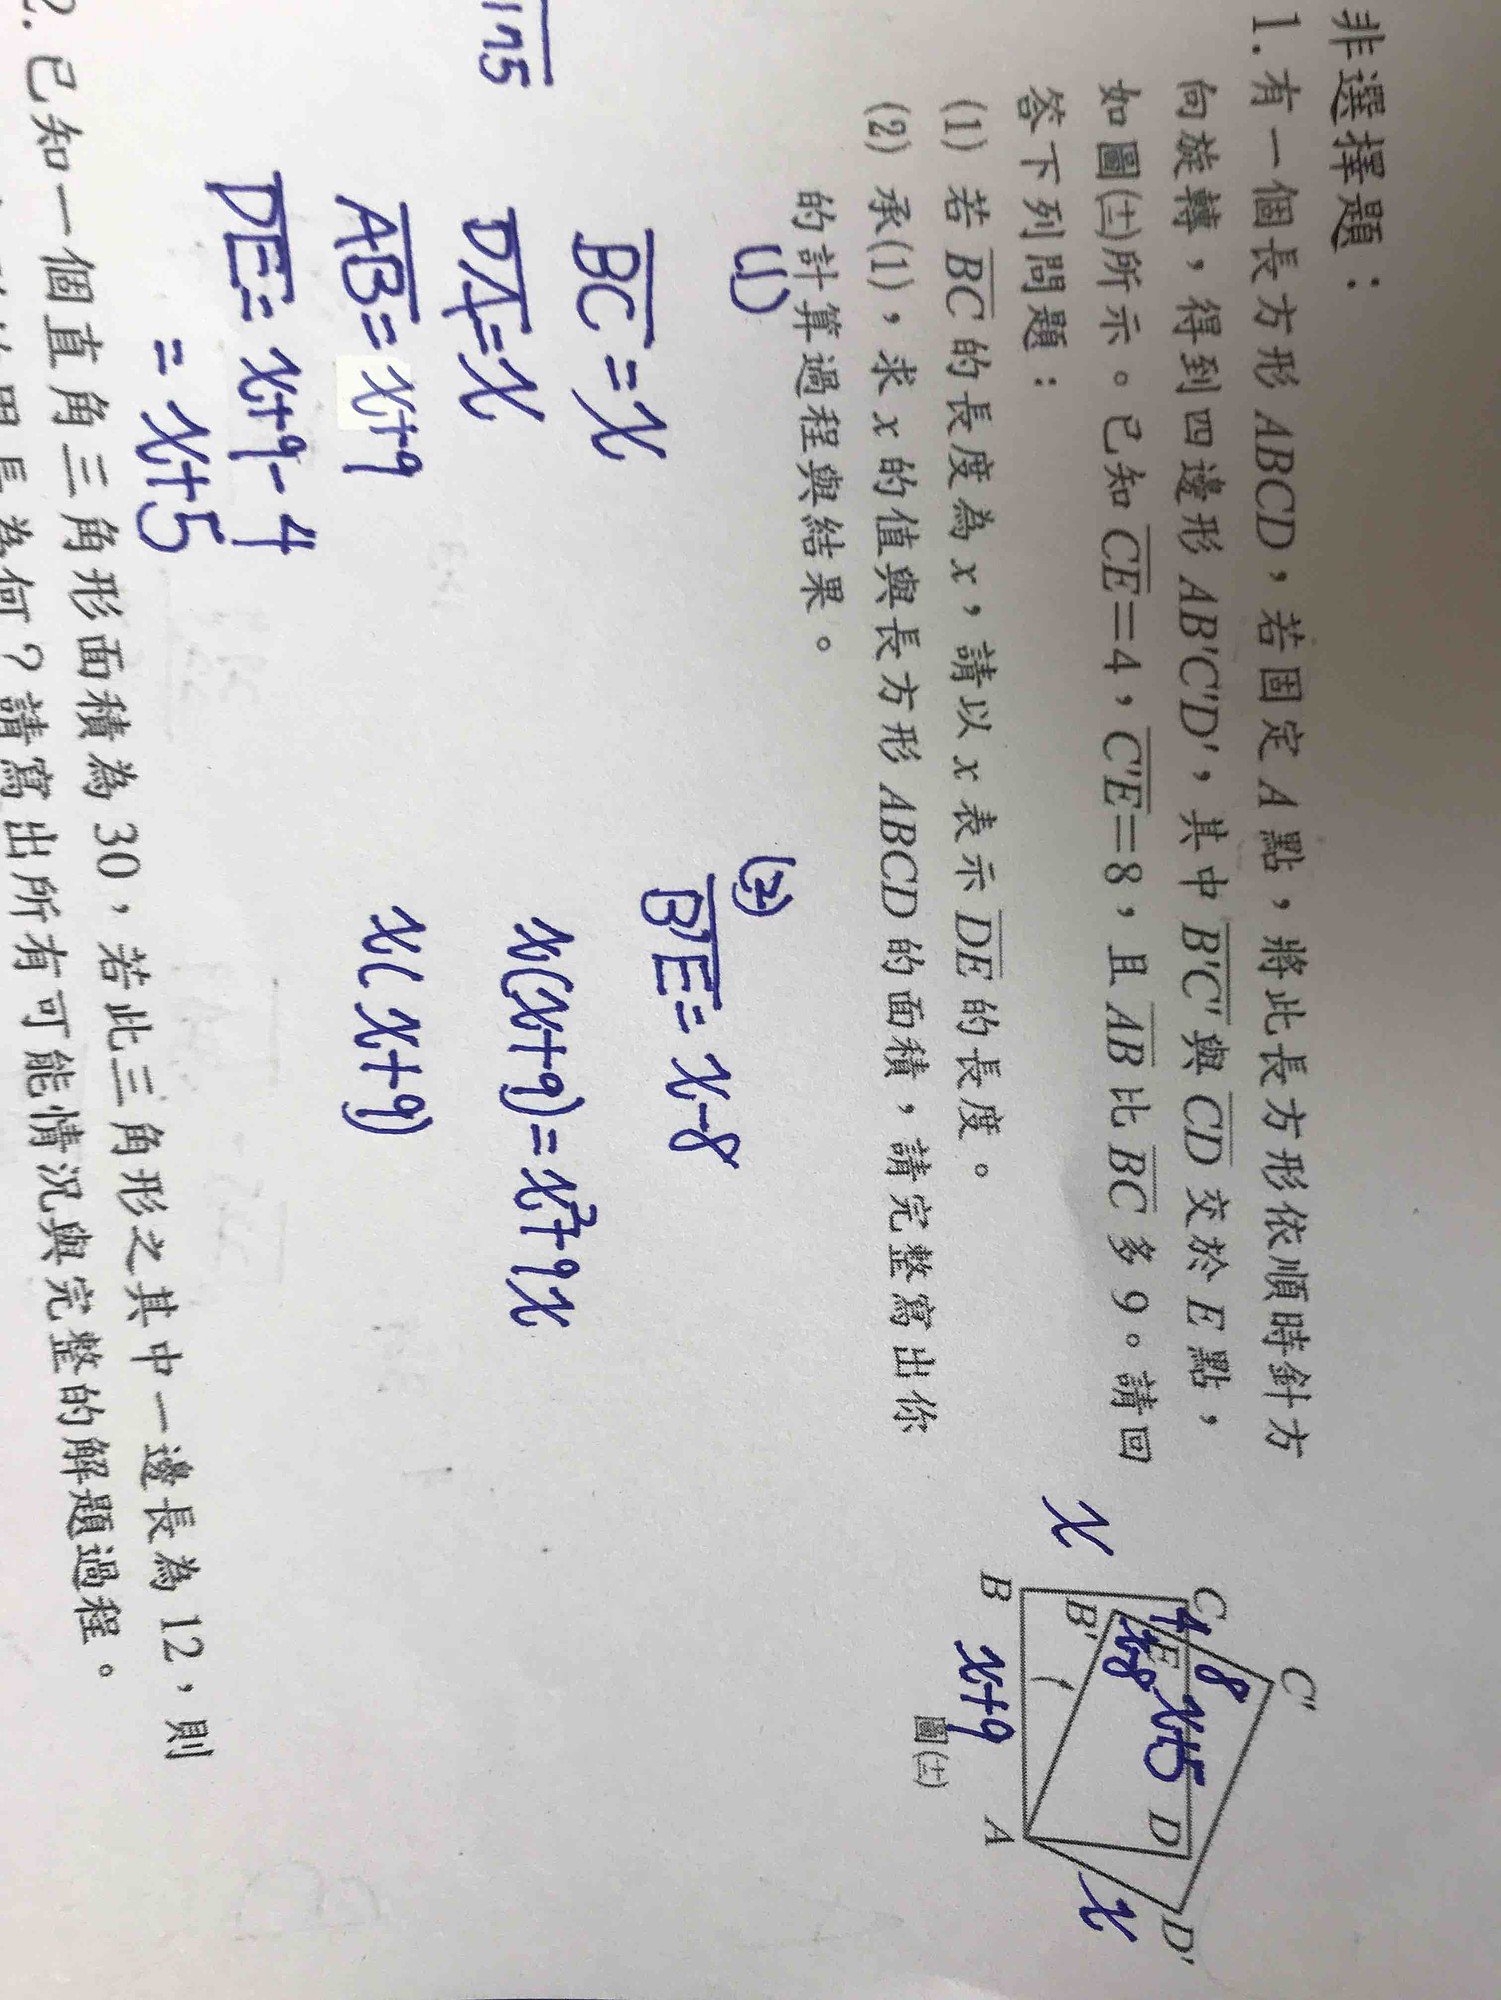 非選擇題：
1. 有一個長方形 ABCD，若固定 A 點，將此長方形依順時針方
向旋轉，得到四邊形 AB'C'D'，其中 B'C' 與 CD 交於 E 點，
如圖(十二)所示。已知 CE=4，C'E=8，且 AB 比 BC 多 9。請回
答下列問題：
(1) 若 BC 的長度為 x，請以 x 表示 DE 的長度。
(2) 承(1)，求 x 的值與長方形 ABCD 的面積，請完整寫出你
的計算過程與結果。
C'
C
4
8
E
x+5
D
D'
x-8
B'
x
x
B
A
x+9
圖(十二)
(1)
BC = x
DA = x
AB = x+9
DE = x+9-4
= x+5
(2)
B'E = x-8
x(x+9) = x²+9x
x(x+9)
2. 已知一個直角三角形面積為 30，若此三角形之其中一邊長為 12，則
周長為何？請寫出所有可能情況與完整的解題過程。